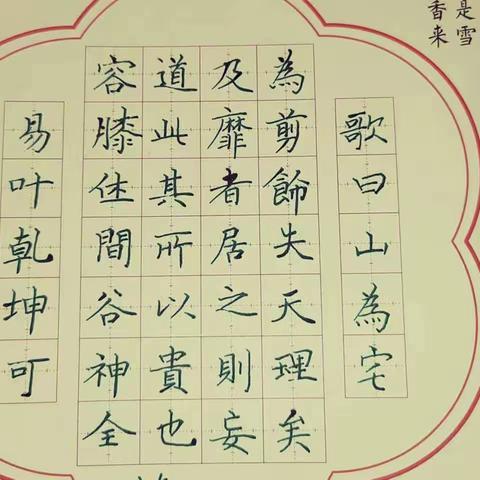 是雪
香来
歌曰山為宅
為剪飾失天理矣
及靡者居之則妄
道此其所以貴也
容膝休間谷神全
易叶乾坤可